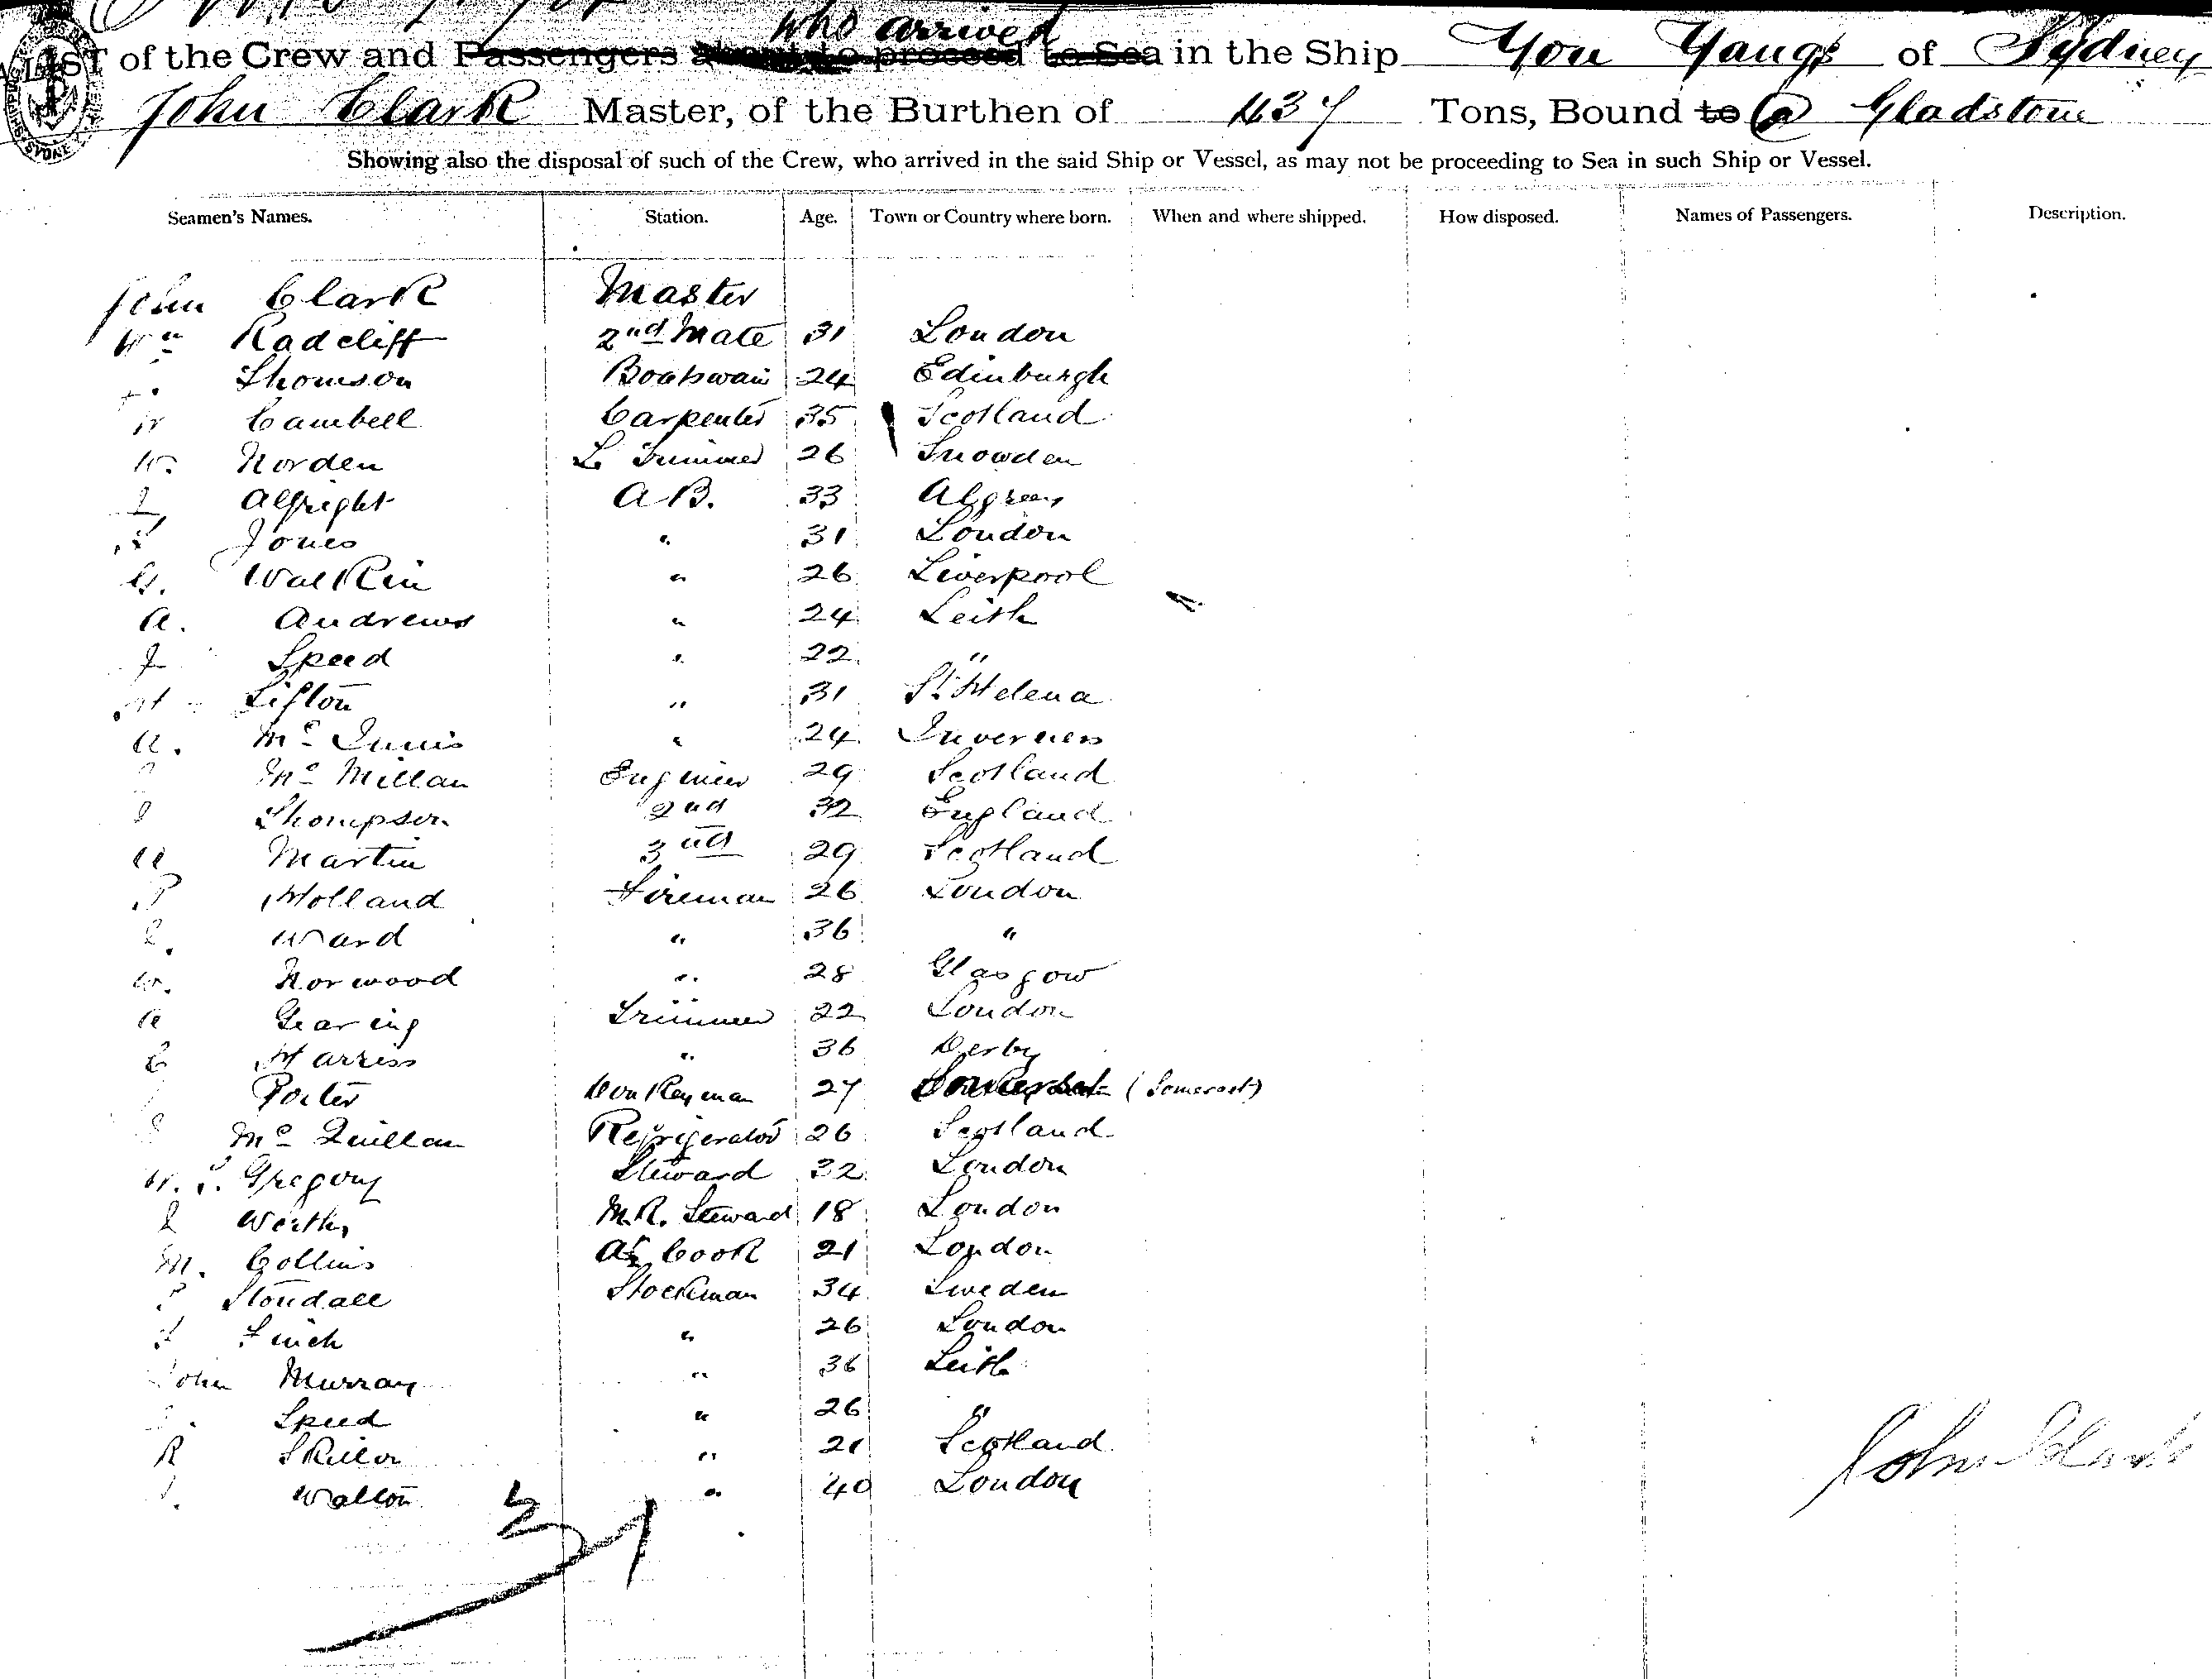 who arrived
LIST of the Crew and Passengers about to proceed to Sea in the Ship You Yangs of Sydney
John Clark Master, of the Burthen of 437 Tons, Bound to @ Gladstone
Showing also the disposal of such of the Crew, who arrived in the said Ship or Vessel, as may not be proceeding to Sea in such Ship or Vessel.
Seamen's Names. Station. Age. Town or Country where born. When and where shipped. How disposed. Names of Passengers. Description.
John Clark Master
Wm Radcliff 2nd Mate 31 London
Thomson Boatswain 24 Edinburgh
Cambell Carpenter 35 Scotland
W. Norden L. Trimmer 26 Snowden
Alfright A.B. 33
Jones " 31 London
G. Walkin " 26 Liverpool
A. Andrews " 24 Leith
J Speed " 22 "
H Lifton " 31 St Helena
A. Mc Innis " 24 Inverness
Mc Millan Engineer 29 Scotland
Thompson 2nd 32 England
A Martin 3rd 29 Scotland
P Holland Fireman 26 London
Ward " 36 "
W. Norwood " 28 Glasgow
A Gearing Trimmer 22 London
C Harriss " 36 Derby
Porter Donkeyman 27 Somerset (Somerset)
Mc Quillan Refrigerator 26 Scotland
W. T. Gregory Steward 32 London
M.R. Steward 18 London
M. Collins As Cook 21 London
Stondall Stockman 34 Sweden
Finch " 26 London
John Murray " 36 Leith
Speed " 26 "
R Skillor " 21 Scotland
Walton " 40 London
31
John Clark